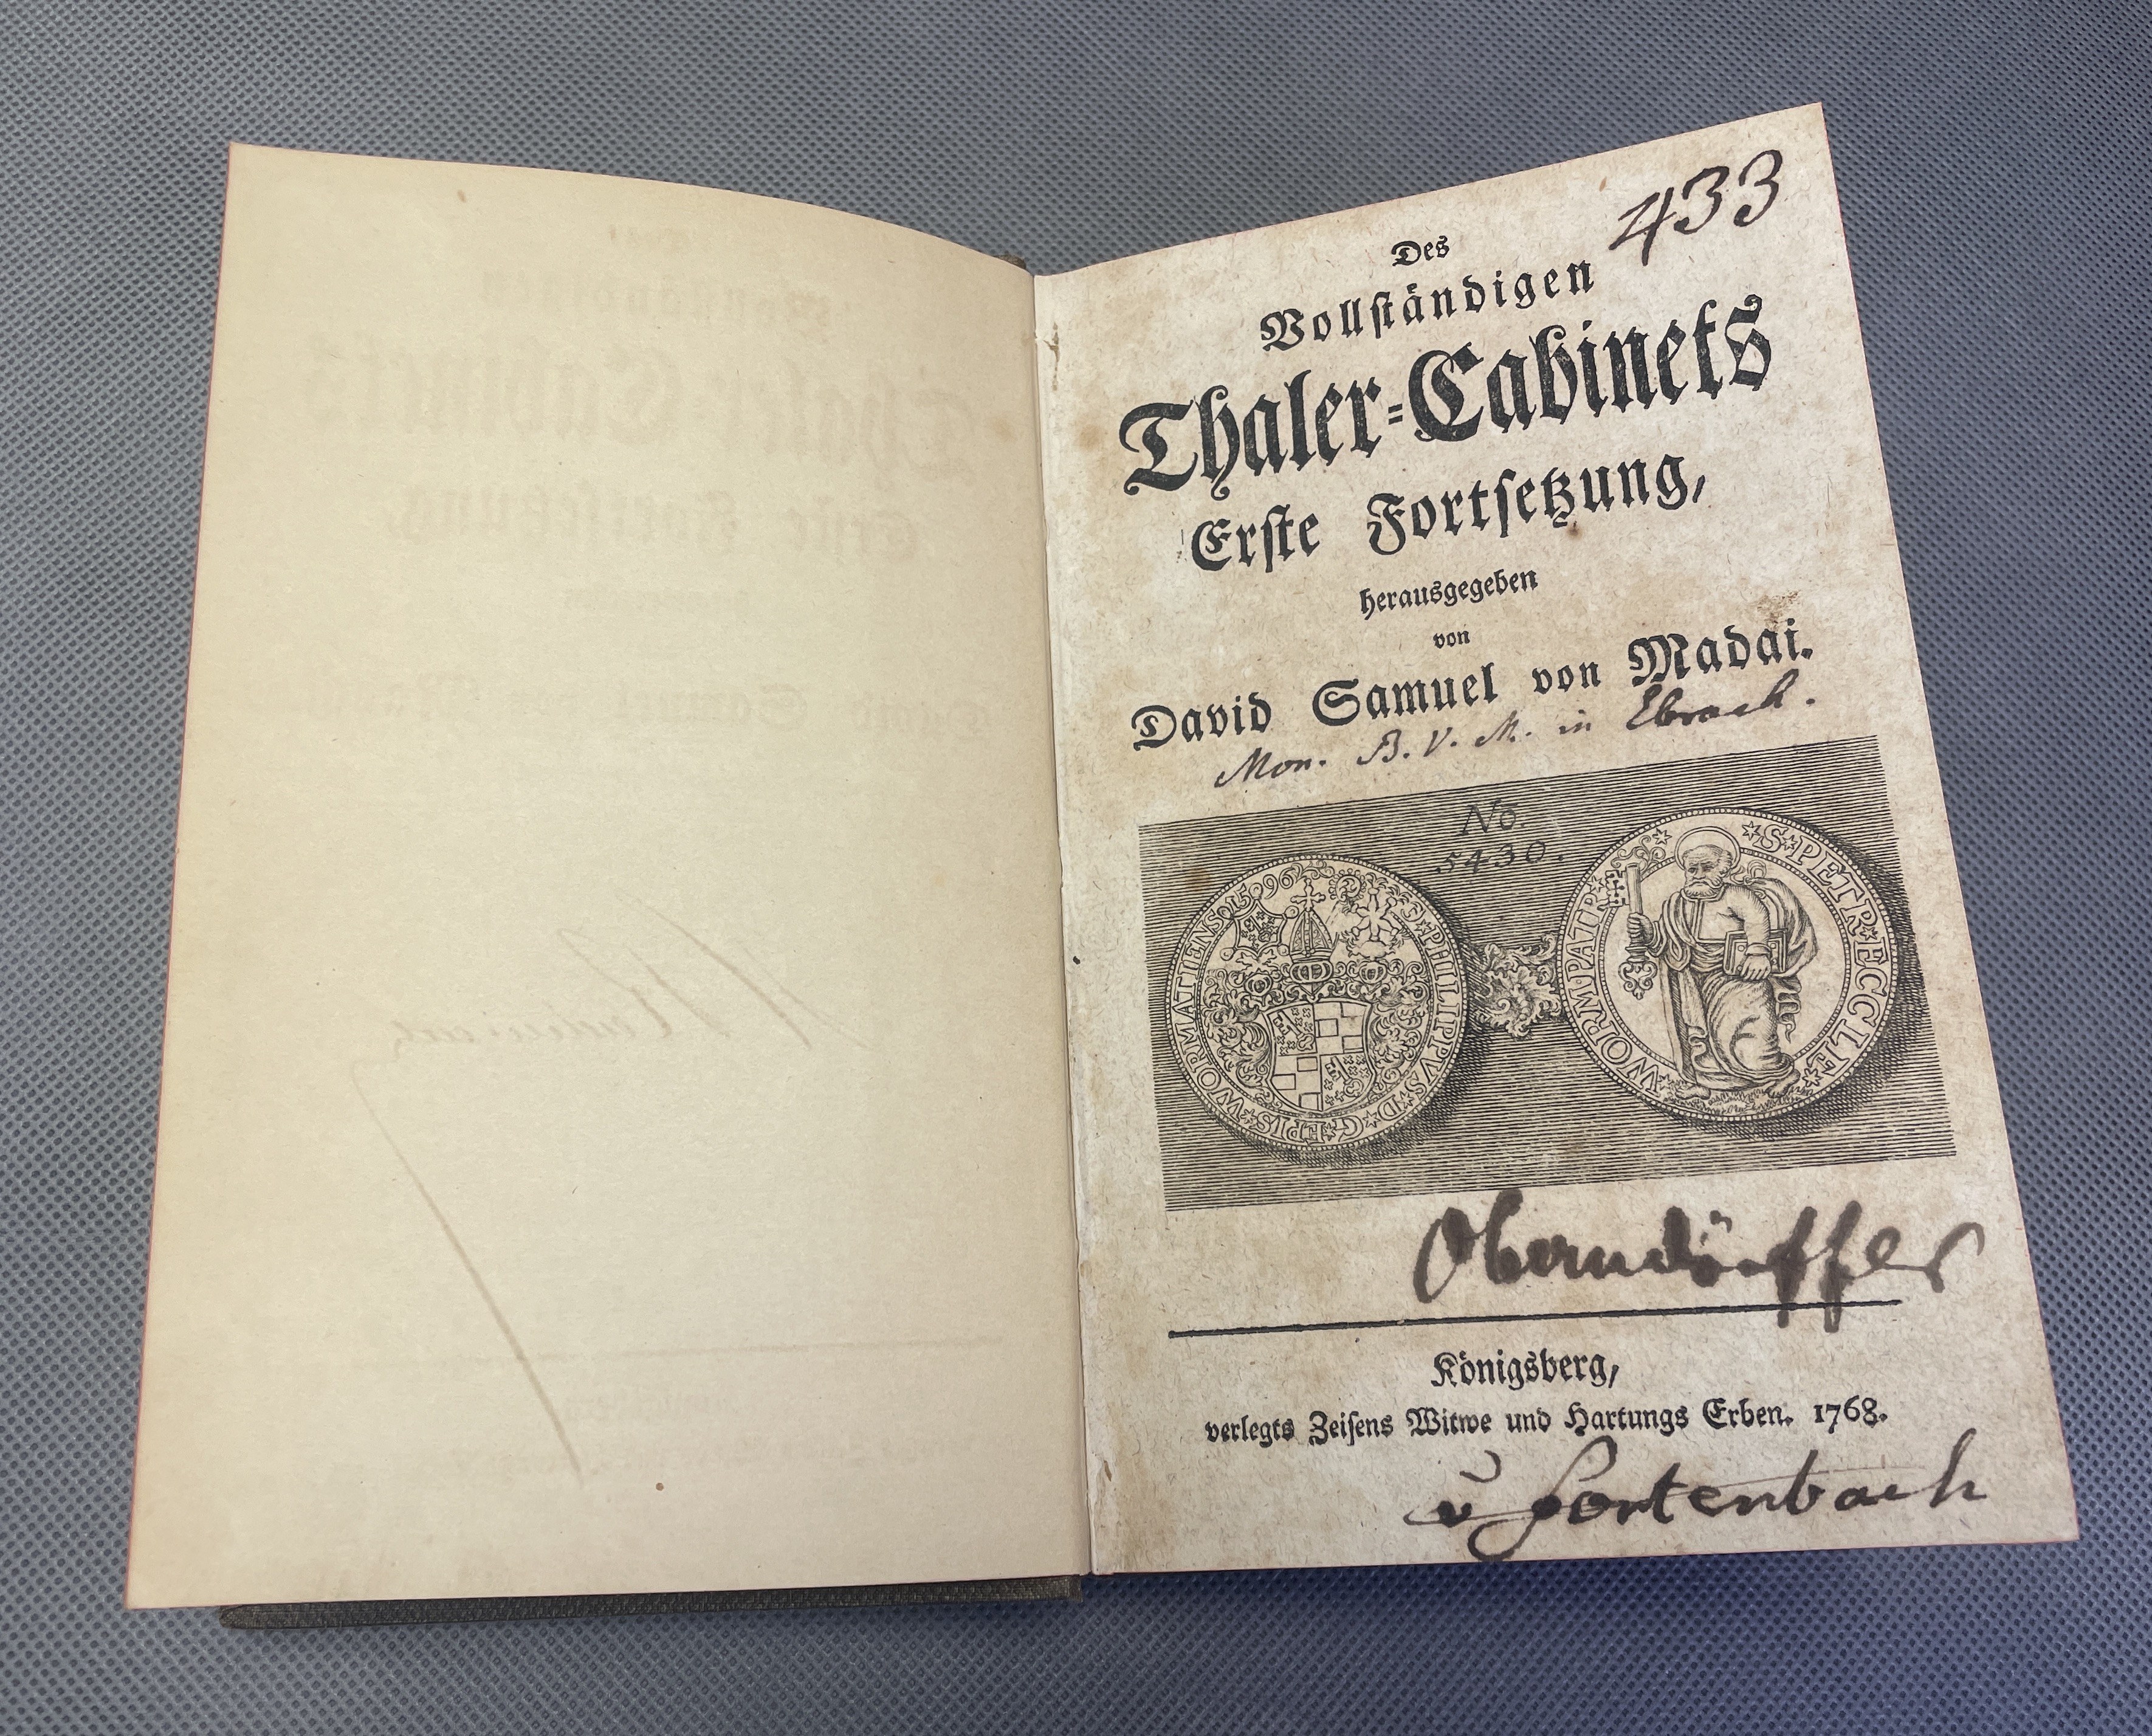 433
Des
Vollständigen
Thaler=Cabinets
Erste Fortsetzung,
herausgegeben
von
David Samuel von Madai.
Mon. B. V. M. in Ebrach.
No.
5430.
PHILIPPVS·D·G·EPIS·WORMATIENS 1596
S·PETR·ECCLE·WORM·PATR
Oberndörffer
Königsberg,
verlegts Zeisens Witwe und Hartungs Erben. 1768.
v Fortenbach